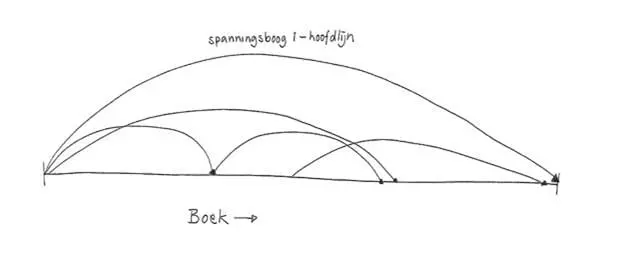 spanningsboog 1 - hoofdlijn
Boek →